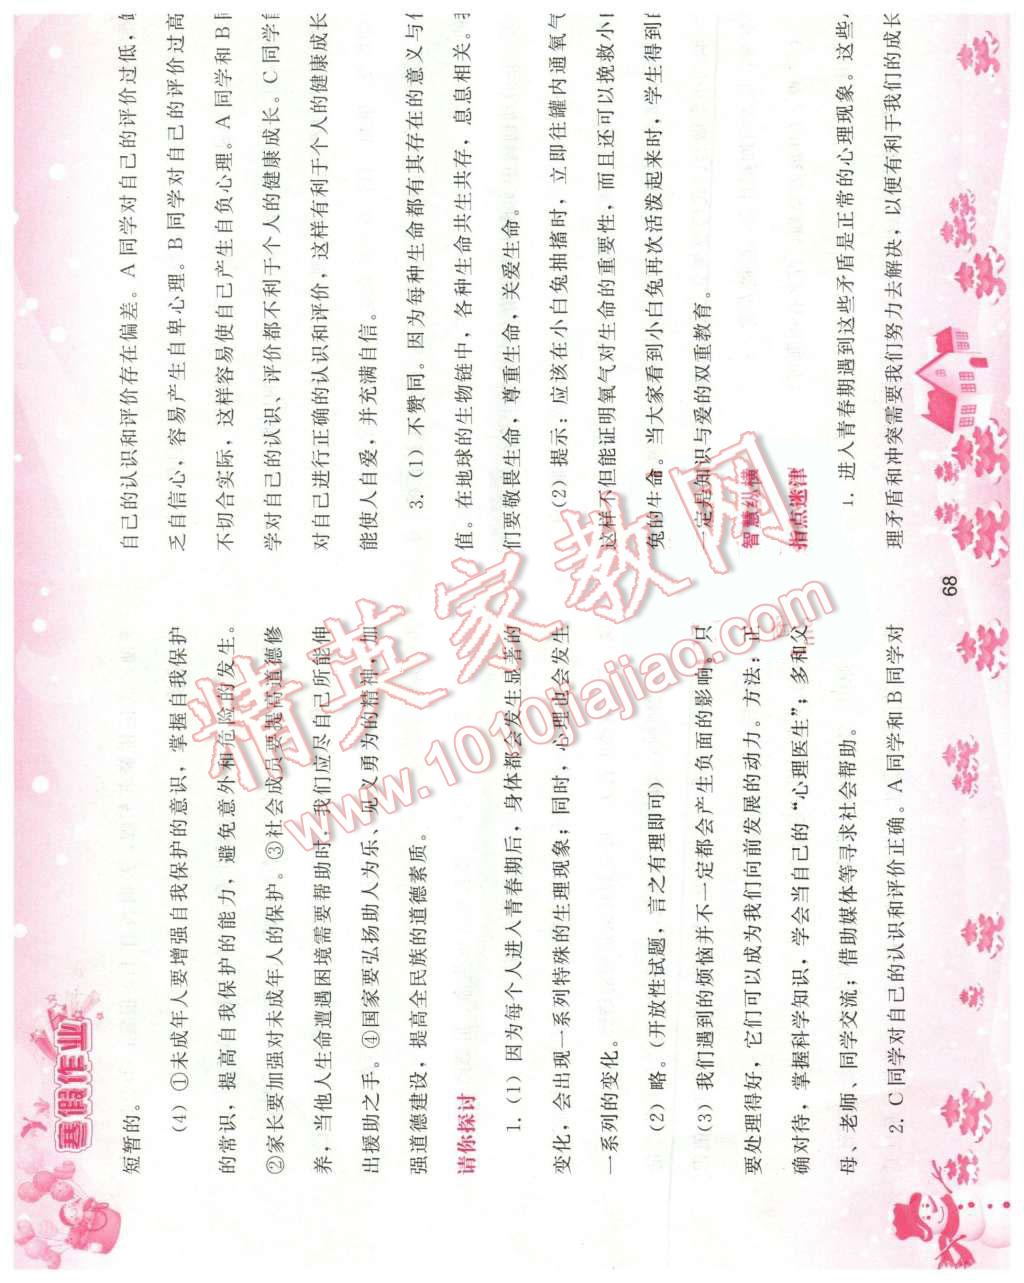 寒假作业
短暂的。
(4) ①未成年人要增强自我保护的意识，掌握自我保护
的常识，提高自我保护的能力，避免意外和危险的发生。
②家长要加强对未成年人的保护。③社会成员要提高道德修
养，当他人生命遭遇困境需要帮助时，我们应尽自己所能伸
出援助之手。④国家要弘扬助人为乐、见义勇为的精神，加
强道德建设，提高全民族的道德素质。
请你探讨
1. (1) 因为每个人进入青春期后，身体都会发生显著的
变化，会出现一系列特殊的生理现象；同时，心理也会发生
一系列的变化。
(2) 略。（开放性试题，言之有理即可）
(3) 我们遇到的烦恼并不一定都会产生负面的影响。只
要处理得好，它们可以成为我们向前发展的动力。方法：正
确对待，掌握科学知识，学会当自己的“心理医生”；多和父
母、老师、同学交流；借助媒体等寻求社会帮助。
2. C同学对自己的认识和评价正确。A同学和B同学对
自己的认识和评价存在偏差。A同学对自己的评价过低，
乏自信心，容易产生自卑心理。B同学对自己的评价过高
不切合实际，这样容易使自己产生自负心理。A同学和B
学对自己的认识、评价都不利于个人的健康成长。C同学
对自己进行正确的认识和评价，这样有利于个人的健康成长
能使人自爱，并充满自信。
3. (1) 不赞同。因为每种生命都有其存在的意义与
值。在地球的生物链中，各种生命共生共存，息息相关。
们要敬畏生命，尊重生命，关爱生命。
(2) 提示：应该在小白兔抽搐时，立即往罐内通氧气
这样不但能证明氧气对生命的重要性，而且还可以挽救小
兔的生命。当大家看到小白兔再次活泼起来时，学生得到
一定是知识与爱的双重教育。
智慧纵横
指点迷津
1. 进入青春期遇到这些矛盾是正常的心理现象。这些
理矛盾和冲突需要我们努力去解决，以便有利于我们的成长
68
精英家教网
www.1010jiajiao.com